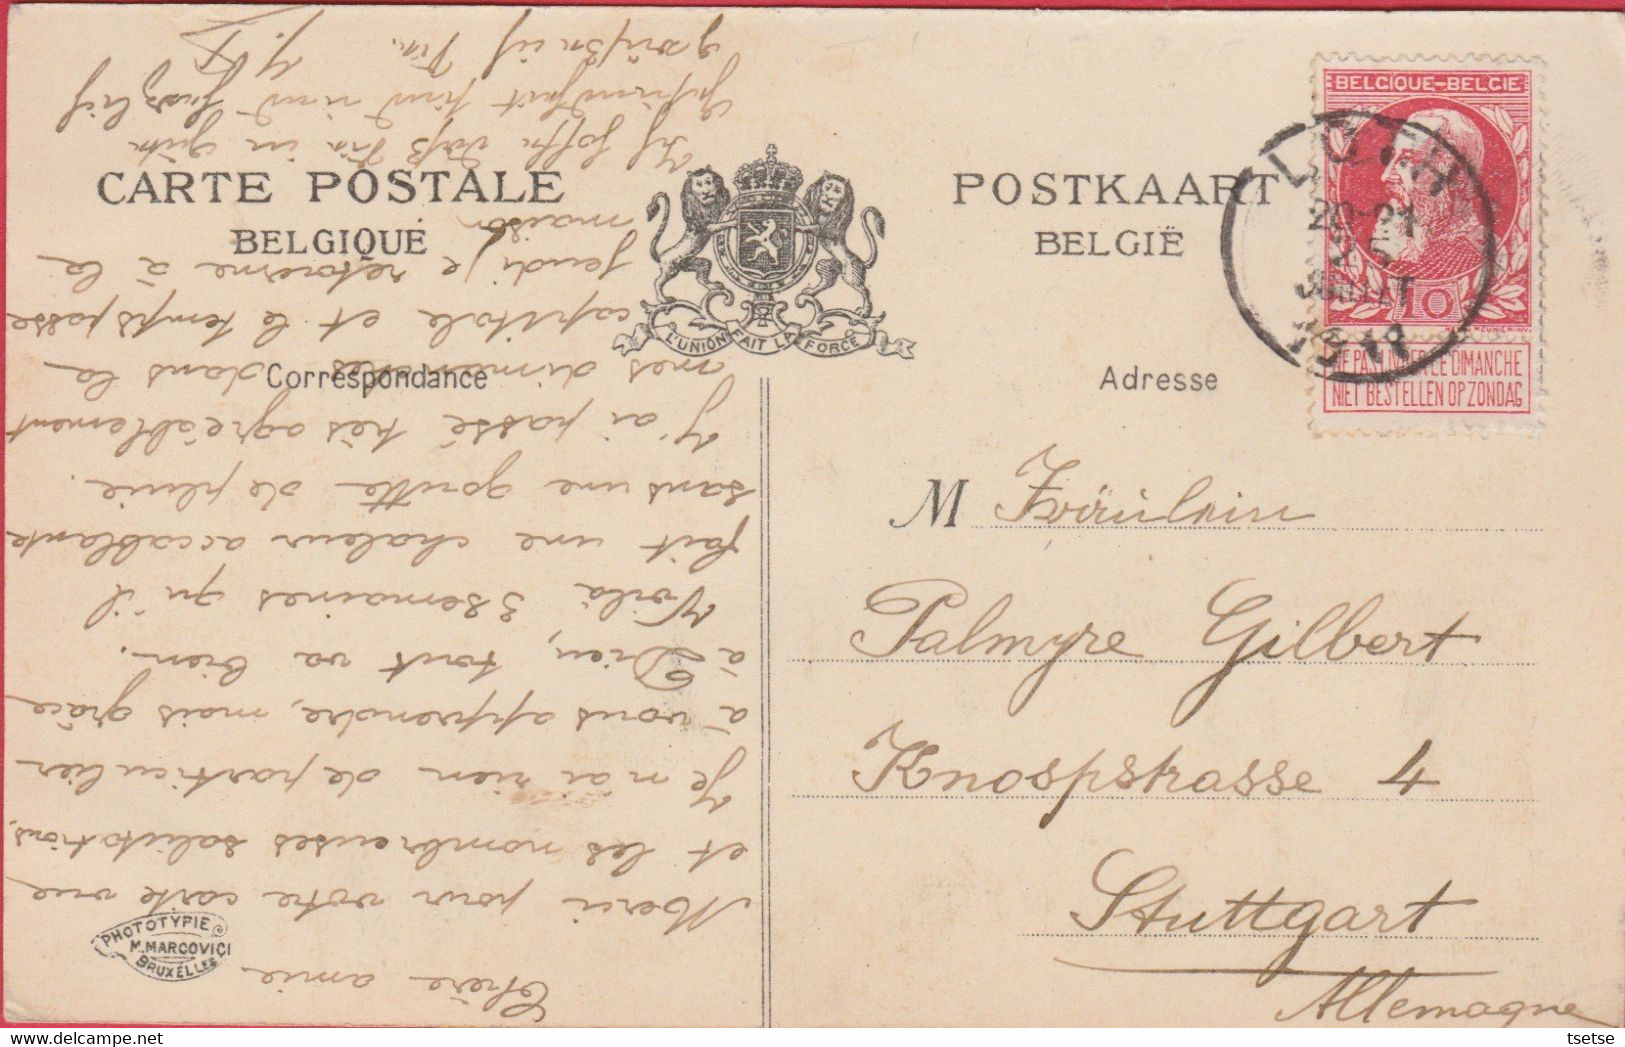 CARTE POSTALE
BELGIQUE
Correspondance
L'UNION FAIT LA FORCE
POSTKAART
BELGIË
Adresse
BELGIQUE-BELGIE
10
NE PAS LIVRER LE DIMANCHE
NIET BESTELLEN OP ZONDAG
20-21
25
JUILLET
M Fräulein
Palmyre Gilbert
Knospstrasse 4
Stuttgart
Allemagne
Chère amie
Merci pour votre carte vue
et les nombreuses salutations.
Je n'ai rien de particulier
à vous apprendre, mais grâce
à Dieu, tout va bien.
Voilà 3 semaines qu'il
fait une chaleur accablante
sans une goutte de pluie.
J'ai passé très agréablement
mes dimanches dans la
capitale et le temps passe
jeudi je retourne à la
maison
Ich hoffe daß Sie in guter
Gesundheit sind und herzlich
grüßen
PHOTOTYPIE
M. MARCOVICI
BRUXELLES
tsetse